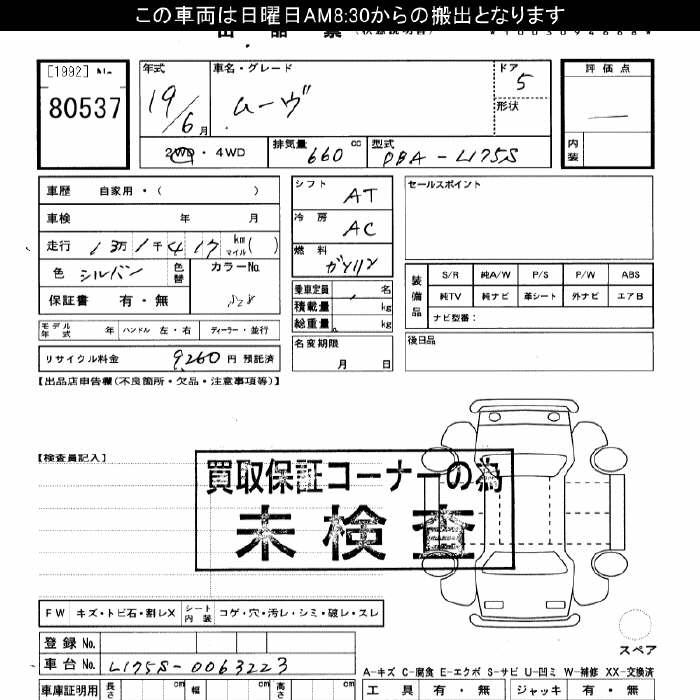 この車両は日曜日AM8:30からの搬出となります
出品票
[1992] No.
80537
年式 19/6月
車名・グレード ムーヴ
ドア 5
形状
評価点 —
内装
2WD・4WD
排気量 660 cc
型式 DBA-L175S
車歴 自家用・( )
車検 年 月
走行 13万1千417 km マイル( )
色 シルバー 色替 カラーNo.
保証書 有・無
シフト AT
冷房 AC
燃料 ガソリン
乗車定員 名
積載量 kg
総重量 kg
セールスポイント
装備品
S/R 純A/W P/S P/W ABS
純TV 純ナビ 革シート 外ナビ エアB
ナビ型番:
モデル年式 年 ハンドル 左・右 ディーラー・並行
リサイクル料金 9,260 円 預託済
名変期限 月 日
後日品
【出品店申告欄(不良箇所・欠品・注意事項等)】
【検査員記入】
買取保証コーナーの為
未検査
FW キズ・トビ石・割レX シート内装 コゲ・穴・汚レ・シミ・破レ・スレ
スペア
登録No.
車台No. L175S-0063223
A-キズ C-腐食 E-エクボ S-サビ U-凹ミ W-補修 XX-交換済
車庫証明用 長さ cm 幅 cm 高さ cm
工具 有・無 ジャッキ 有・無